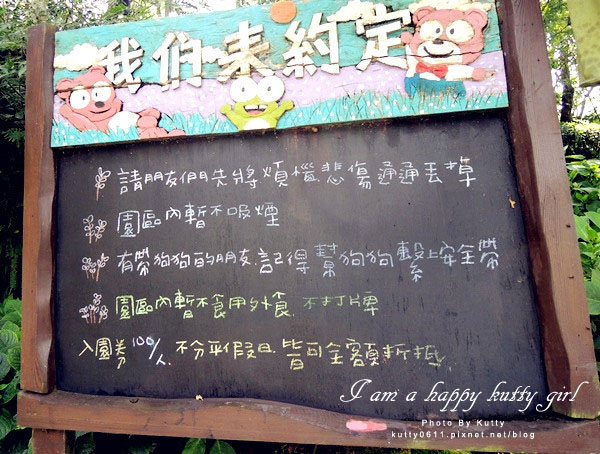 我们来約定
請朋友們先將煩惱悲傷通通丟掉
園區內暫不吸煙
有帶狗狗的朋友,記得幫狗狗繫上安全帶
園區內暫不食用外食.不打牌
入園券100/人.不分平假日.皆可全額折抵.
I am a happy kutty girl
Photo By Kutty
kutty0611.pixnet.net/blog